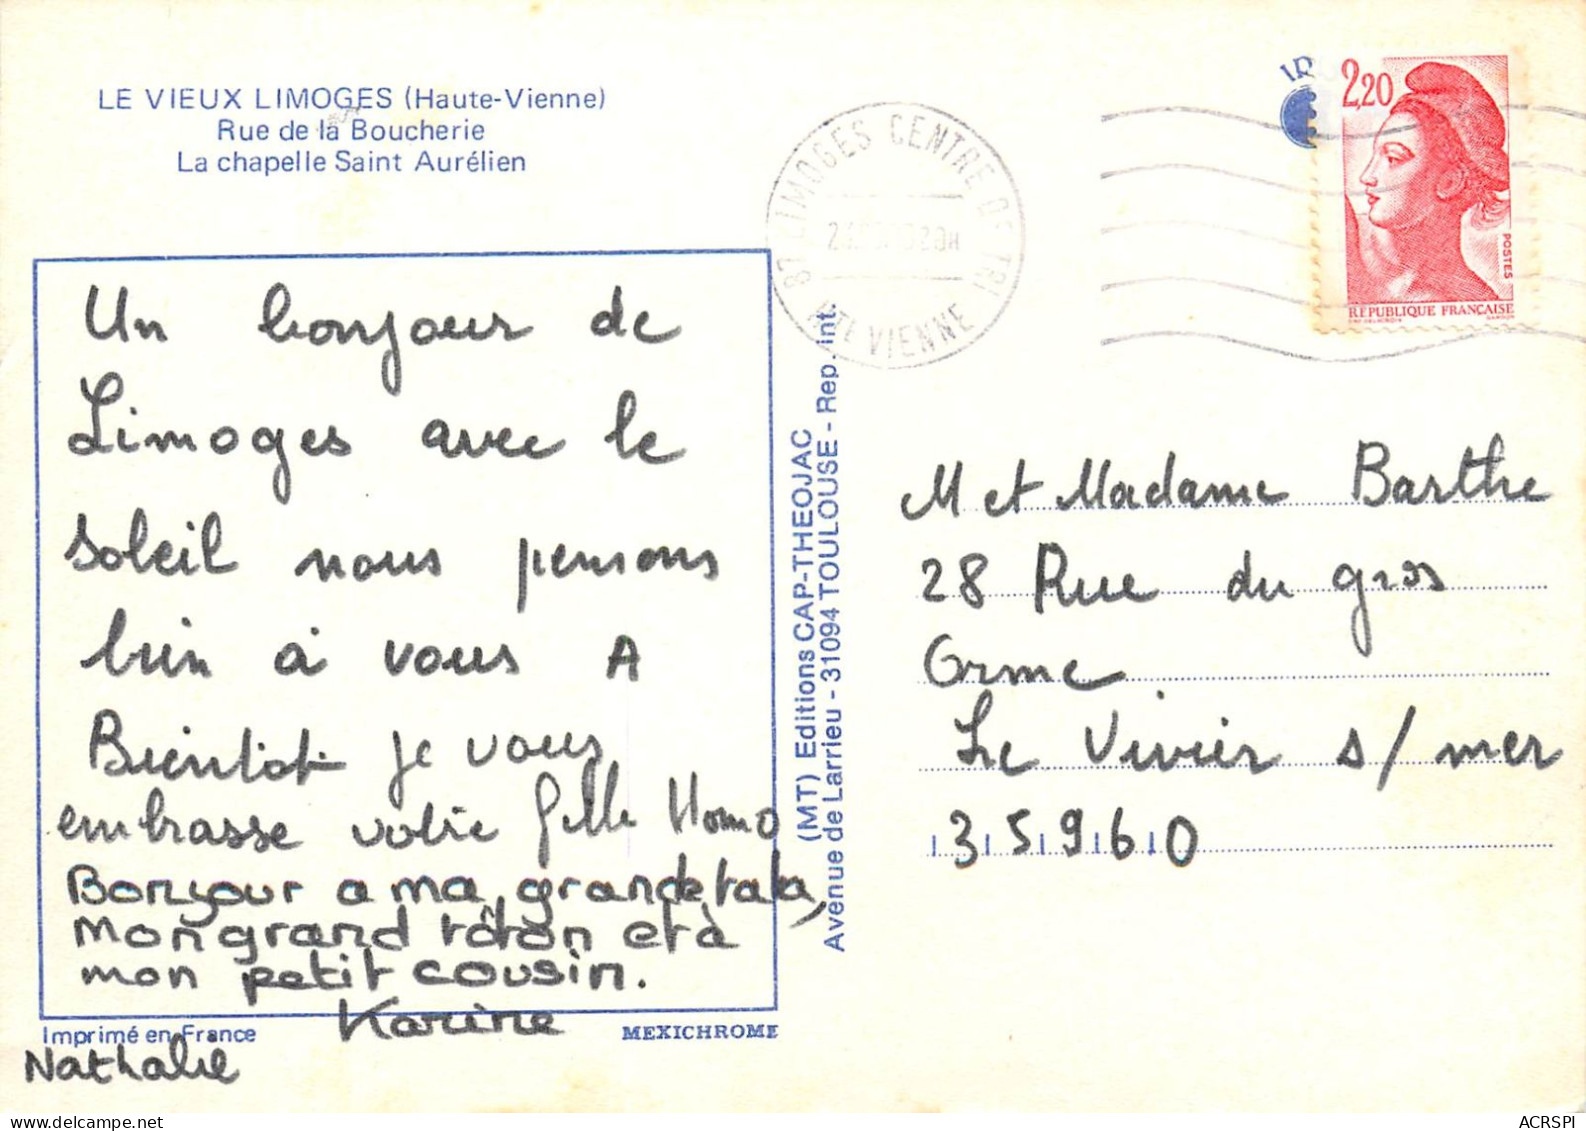 LE VIEUX LIMOGES (Haute-Vienne)
Rue de la Boucherie
La chapelle Saint Aurélien
Un bonjour de
Limoges avec le
soleil nous pensons
bien à vous A
Bientôt je vous
embrasse votre fille Momo
Bonjour a ma grande tata,
mon grand tôton et à
mon petit cousin.
Karine
Nathalie
Imprimé en France
MEXICHROME
(MT) Editions CAP-THEOJAC
Avenue de Larrieu - 31094 TOULOUSE - Rep. int.
87 LIMOGES CENTRE DE TRI
HTE VIENNE
2,20
POSTES
REPUBLIQUE FRANÇAISE
M et Madame Barthe
28 Rue du gros
Orme
Le Vivier s/mer
35960
ACRSPI